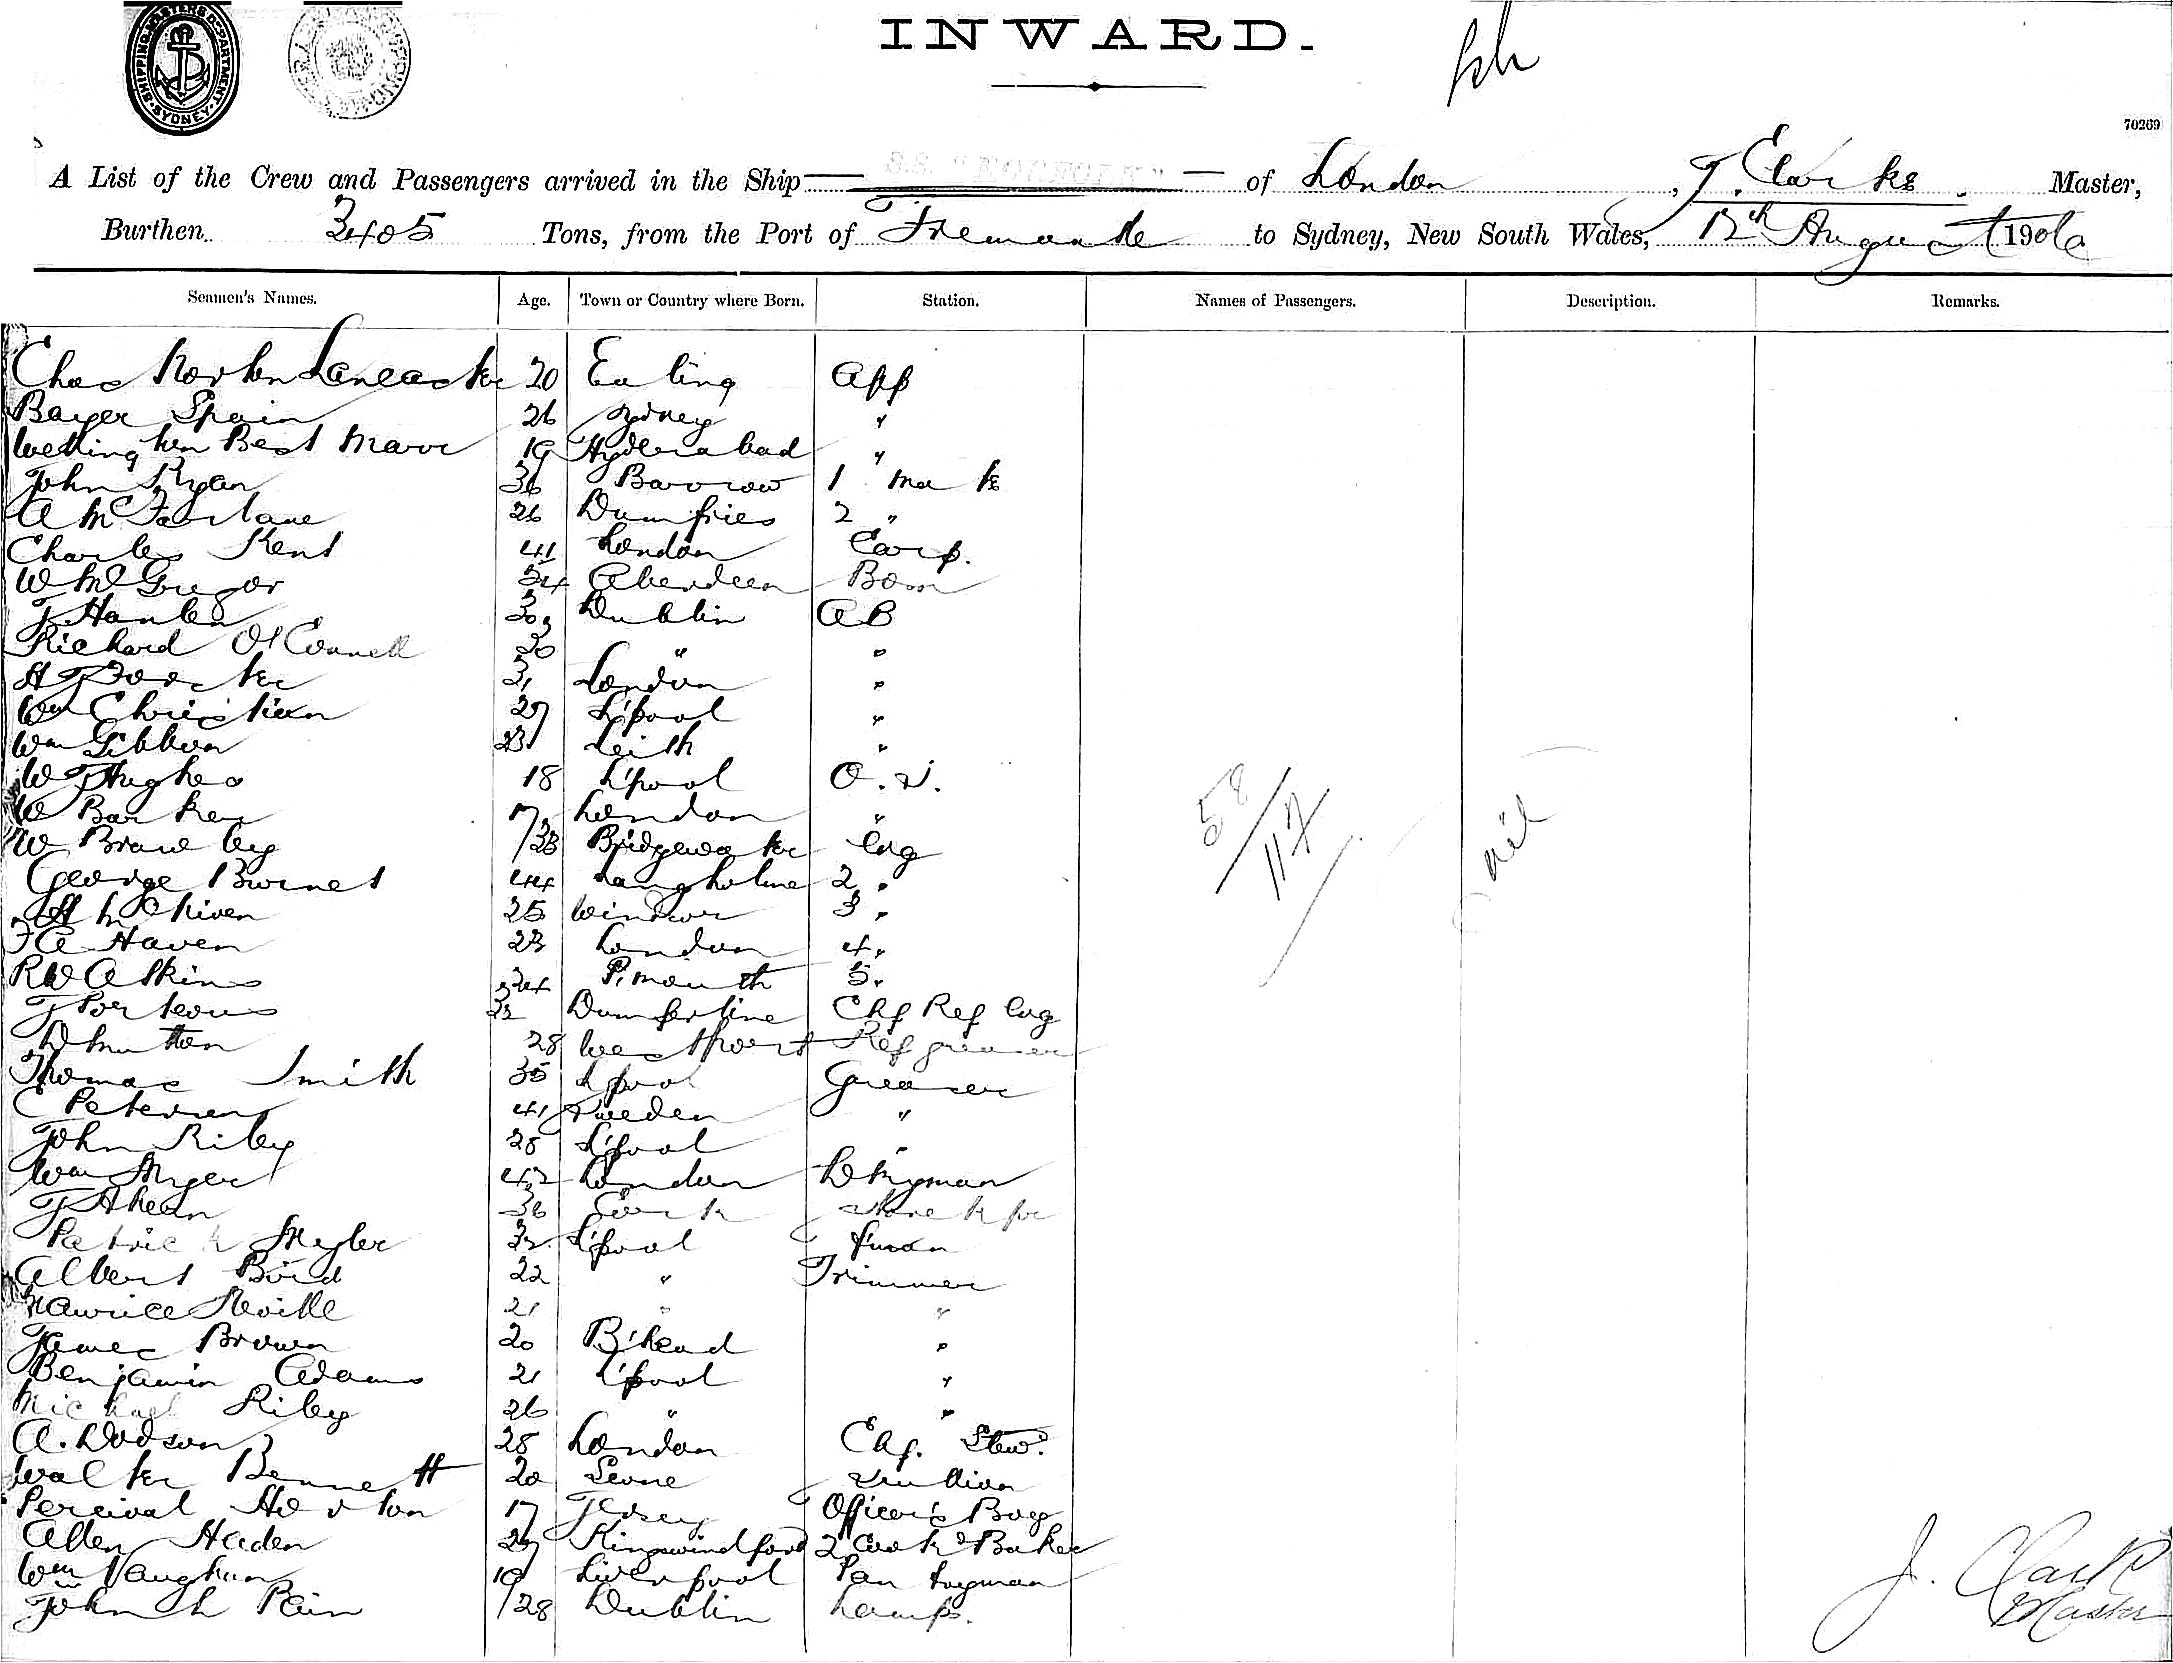 SHIPPING MASTERS DEPARTMENT SYDNEY
INWARD.
70269
A List of the Crew and Passengers arrived in the Ship of London, J. Clarke. Master,
Burthen 3405 Tons, from the Port of Fremantle to Sydney, New South Wales, 12th August 1906
Seamen's Names. Age. Town or Country where Born. Station. Names of Passengers. Description. Remarks.
Chas Norton Lancaster 20 Ealing App
Bayer Spain 26 Sydney "
Wellington Best Marr 19 Hyderabad "
John Ryan 36 Barrow 1 Mate
A McFarlane 26 Dumfries 2 "
Charles Kent 41 London Carp.
W McGregor 54 Aberdeen Bosn
J Hanlen 30 Dublin AB
Richard O'Connell 30 " "
H Forster 31 London "
Wm Christian 27 L'pool "
Wm Gibbon 23 Leith "
W Hughes 18 L'pool O.S.
W Barker 17 London "
W Brawley 38 Bridgewater Eng
George Burnet 44 Langholme 2 "
25 Windsor 3 "
Haven 23 London 4 "
RW Atkins 24 P'mouth 5 "
J Porteous 32 Dumferline Chf Ref Eng
D Hutton 28 Westport Ref greaser
Thomas Smith 35 L'pool Greaser
C Petersen 41 Sweden "
John Riley 28 L'pool "
Wm 42 London Dkyman
J Ahearn 36 Cork Storekpr
Patrick Myler 32 L'pool F'man
Albert Bird 22 " Trimmer
Maurice Neville 21 " "
James Brown 20 B'head "
Benjamin Adams 21 L'pool "
Michael Riley 26 " "
A. Dodson 28 London Chf. Stewd
Walter Bennett 20 Scullion
Percival Horton 17 Jersey Officer's Boy
Allen Haden 27 Kingswindford 2 Cook & Baker
Wm Vaughan 19 Liverpool Pantryman
John L Pain 28 Dublin Lamps.
58
117
nil
J. Clark
Master